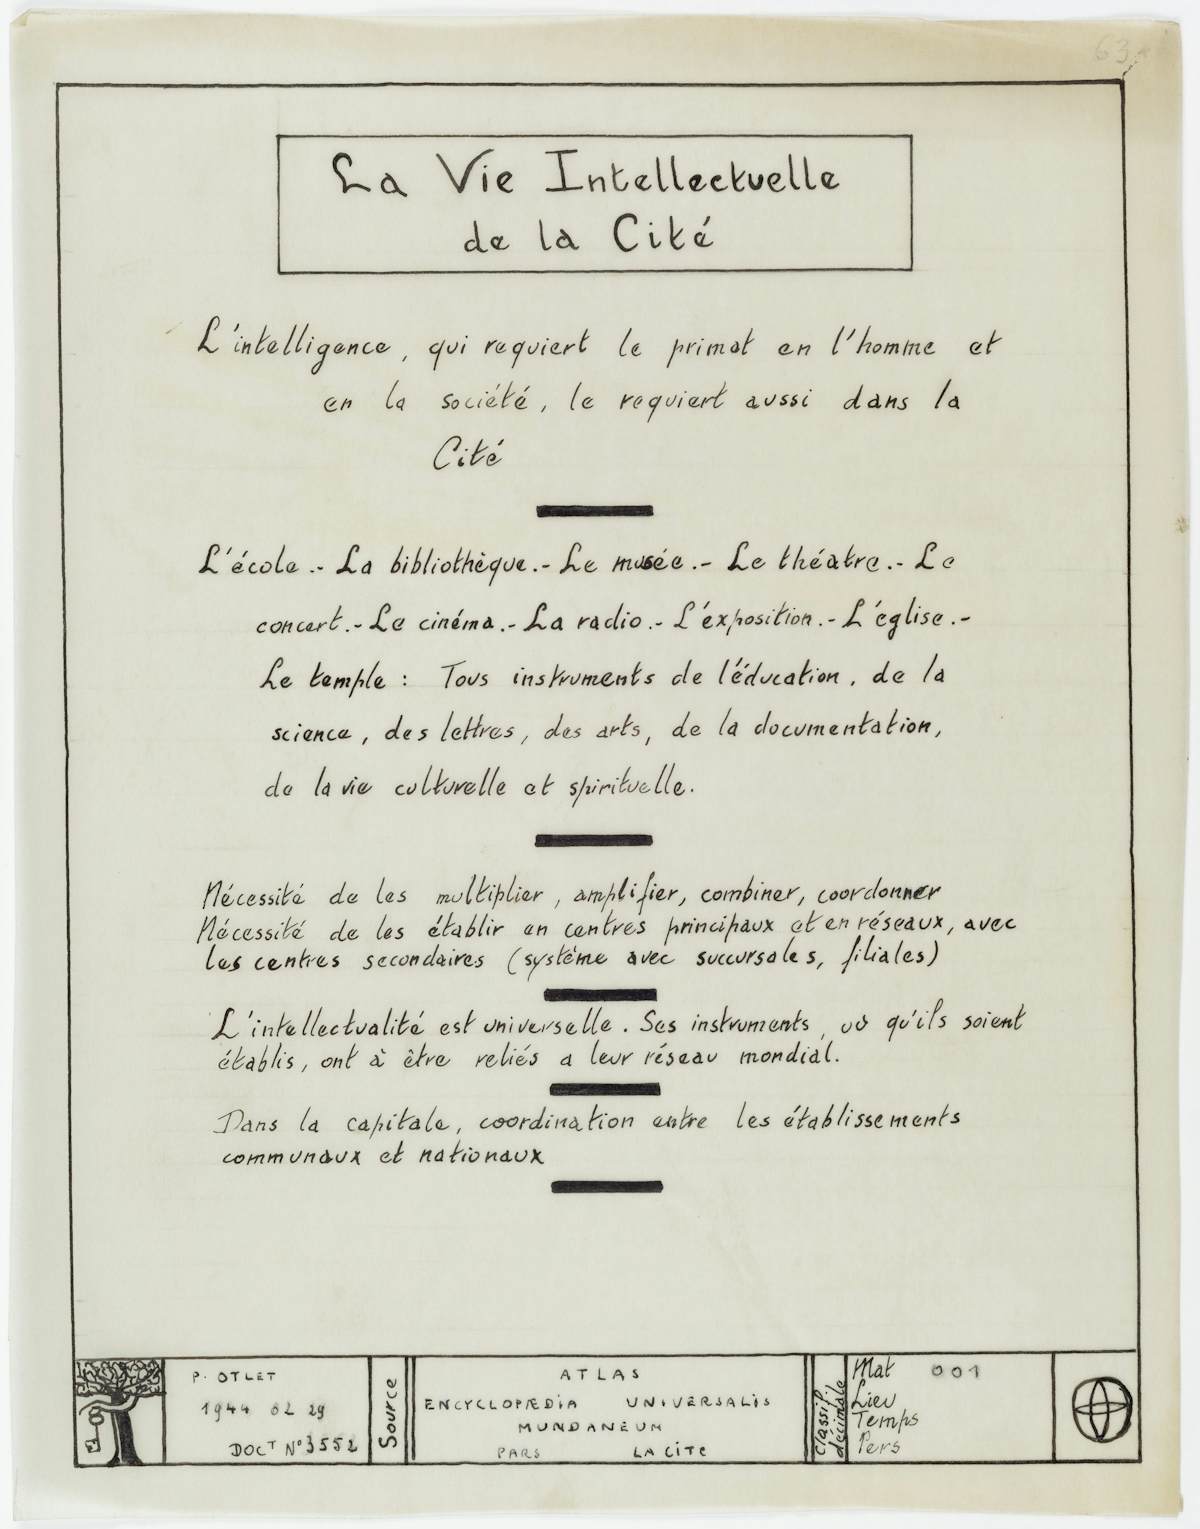 63
La Vie Intellectuelle
de la Cité
L'intelligence, qui requiert le primat en l'homme et
en la société, le requiert aussi dans la
Cité
L'école.- La bibliothèque.- Le musée.- Le théatre.- Le
concert.- Le cinéma.- La radio.- L'exposition.- L'église.-
Le temple : Tous instruments de l'éducation, de la
science, des lettres, des arts, de la documentation,
de la vie culturelle et spirituelle.
Nécessité de les multiplier, amplifier, combiner, coordonner
Nécessité de les établir en centres principaux et en réseaux, avec
les centres secondaires (système avec succursales, filiales)
L'intellectualité est universelle. Ses instruments, où qu'ils soient
établis, ont à être reliés a leur réseau mondial.
Dans la capitale, coordination entre les établissements
communaux et nationaux
P. OTLET
1944 02 29
DOCT N° 3552
Source
ATLAS
ENCYCLOPÆDIA UNIVERSALIS
MUNDANEUM
PARS LA CITE
Classif.
décimale
Mat 001
Lieu
Temps
Pers